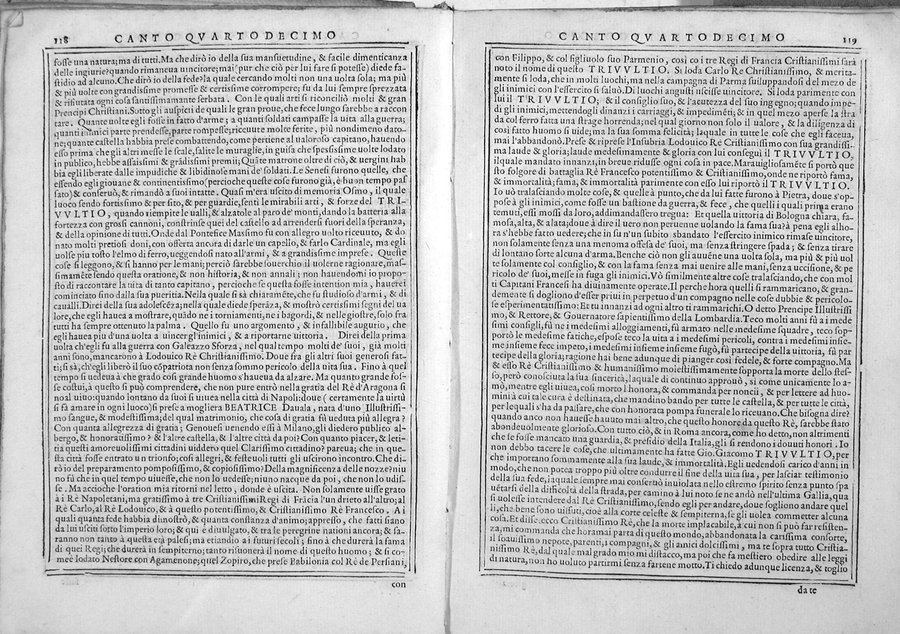 118 CANTO QVARTODECIMO
fosse una natura; ma di tutti. Ma che dirò io della sua mansuetudine, & facile dimenticanza
delle ingiurie? quando rimaneua uincitore; mai (pur che ciò per lui fare si potesse) diede fa-
stidio ad alcuno. Che dirò io della fede? la quale cercando molti non una uolta sola; ma più
& più uolte con grandissime promesse & certissime corrompere; fu da lui sempre sprezzata
& rifiutata ogni cosa santissimamante serbata. Con le quali arti si riconciliò molti & gran
Principi Christiani. Sotto gli auspici de quali le gran proue, che fece lungo sarebbe a raccon
tare. Quante uolte egli fosse in fatto d'arme; a quanti soldati campasse la uita alla guerra;
quanti nimici parte prendesse, parte rompesse; riceuute molte ferite, più nondimeno dato-
ne; quante castella habbia prese combattendo, come pertiene al ualoroso capitano, hauendo
esso prima che gli altri messe le scale, salite le muraglie, in guisa che spessissime uolte lodato
in publico, hebbe assaissimi & grãdissimi premii; Quãte matrone oltre di ciò, & uergini hab
bia egli liberate dalle impudiche & libidinose mani de' soldati. Le Senesi furono quelle, che
essendo egli giouane & continentissimo (percioche queste cose furono già, è buon tempo pas
sato) & conseruò, & rimandò a suoi intatte. Quasi m'era uscito di memoria Osimo, il quale
luogo sendo fortissimo & per sito, & per guardie, sentì le mirabili arti, & forze del TRI-
VVLTIO, quando riempite le ualli, & alzatole al paro de monti, dando la batteria alla
fortezza con grossi cannoni, constrinse quei del castello ad arrendersi fuori della speranza,
& della opinione di tutti. Onde dal Pontefice Massimo fu con allegro uolto riceuuto, & do
nato molti pretiosi doni, con offerta ancora di darle un capello, & farlo Cardinale, ma egli
uolse piu tosto l'elmo di ferro, ueggendosi nato all'armi, & a grandissime imprese. Queste
cose si leggono, & si hanno per le mani; perciò sarebbe souerchio il uolerne ragionare, mas-
simamẽte sendo questa oratione, & non historia, & non annali; non hauendomi io propo-
sto di raccontare la uita di tanto capitano, percioche se questa fosse intention mia, hauerei
cominciato sino dalla sua pueritia. Nella quale si sà chiaramẽte, che fu studioso d'armi, & di
caualli. Direi della sua adolescẽza; nella quale diede speràza, & mostrò certissimi segni del ua
lore, che egli hauea a mostrare, quãdo ne i torniamenti, ne i bagordi, & nelle giostre, solo fra
tutti ha sempre ottenuto la palma. Quello fu uno argomento, & infallibile augurio, che
egli hauea piu d'una uolta a uincer gl'inimici, & a riportarne uittoria. Direi della prima
uolta ch'egli fu alla guerra con Galeazzo Sforza, nel qual tempo molti de' suoi, già molti
anni sono, mancarono à Lodouico Rè Christianissimo. Doue fra gli altri suoi generosi fat-
ti; si sà, ch'egli liberò il suo cõpatriota non senza sommo pericolo della uita sua. Fino à quel
tempo si uedeua à che grado così grande huomo s'haueua da alzare. Ma quanto grande fos-
se costui, à questo si può comprendere, che non pure entrò nella gratia del Rè d'Aragona si
noal uiuo: quando lontano da suoi si uiuea nella città di Napoli: doue (certamente la uirtù
si fa amare in ogni luoco) si prese a mogliera BEATRICE Dauala, nata d'uno Illustrissi-
mo sangue, & modestissima; del qual matrimonio, che cosa di gratia fù ueduta più allegra?
Con quanta allegrezza di gratia; Genouesi uenendo essi à Milano, gli diedero publico al-
bergo, & honoratissimo? & l'altre castella, & l'altre città da poi? Con quanto piacer, & leti-
tia questi amoreuolissimi cittadini uiddero quel Clarissimo cittadino? pareua; che in que-
sta città fosse entrato un trionfo; così allegri, & festeuoli tutti gli uscirono incontro. Che di-
rò io del preparamento pomposissimo, & copiosissimo? Della magnificenza delle nozze? niu
no fù che in quel tempo uiuesse, che non lo uedesse; niuno nacque da poi, che non lo udis-
se. Ma acciòche l'oration mia ritorni nel letto, donde è uscita. Non solamente uisse grato
a i Rè Napoletani, ma gratissimo a tre Christianissimi Regi di Frãcia l'un drieto all'altro; al
Rè Carlo, al Rè Lodouico, & à questo potentissimo, & Cristianissimo Rè Francesco. A i
quali quanta fede habbia dimostrò, & quanta constanza d'animo; appresso, che fatti siano
da lui usciti sotto l'imperio loro; & qui è uolgato, & tra le peregrine nationi ancora; & sa-
ranno non tanto à questa età palesi; ma etiandio ai futuri secoli; sino à che durerà la fama
di quei Regi; che durerà in sempiterno; tanto risuonerà il nome di questo huomo; & si co-
me è lodato Nestore con Agamenone; quel Zopiro, che prese Babilonia col Rè de Persiani,
con
CANTO QVARTODECIMO 119
con Filippo, & col figliuolo suo Parmenio, così co i tre Regi di Francia Cristianissimi sarà
noto il nome di questo TRIVVLTIO. Si loda Carlo Re Christianissimo, & merita-
mente si loda, che in molti luochi, ma nella campagna di Parma suiluppandosi del mezo de
gli inimici con l'essercito si saluò. Di luochi angusti uscisse uincitore. Si loda parimente con
lui il TRIVVLTIO; & il consiglio suo, & l'acutezza del suo ingegno; quando impe-
dì gli inimici, mettendogli dinanzi i carriaggi, & impedimẽti; & in quel mezo aperse la stra
da col ferro fatta una strage horrenda; nel qual giorno non solo il ualore, & la diligenza di
così fatto huomo si uide; ma la sua somma felicità; laquale in tutte le cose che egli faceua,
mai l'abbandonò. Prese & ripresè l'Insubria Lodouico Rè Cristianissimo con sua grandissi-
ma laude & gloria; laude medesimamente & gloria con lui conseguì il TRIVVLTIO,
ilquale mandato innanzi, in breue ridusse ogni cosa in pace. Marauigliosamẽte si portò que
sto folgore di battaglia Rè Francesco potentissimo & Cristianissimo, onde ne riportò fama,
& immortalità; fama, & immortalità parimente con esso lui riportò il TRIVVLTIO.
Io uò tralasciando molte cose, & quelle appunto, che da lui fatte furono à Pietra, doue s'op-
pose à gli inimici, come fosse un bastione da guerra, & fece, che quelli i quali prima erano
temuti, essi mossi da loro, addimandassero tregua: Et quella uittoria di Bologna chiara, fa-
mosa, alta, & alata; doue à dire il uero non peruenne uolando la fama sua? à pena egli allho-
ra s'hebbe fatto uedere; che in un subito sbandato l'essercito inimico rimase uincitore,
non solamente senza una menoma offesa de' suoi, ma senza stringere spada; & senza tirare
di lontano forte alcuna d'arma. Benche ciò non gli auuẽne una uolta sola, ma più & più uol
te solamente col consiglio, & con la fama senza mai uenire alle mani, senza uccisone, & pe
ricolo de' suoi, messe in fuga gli inimici. Vò similmente altre cose tralasciando, che con mol
ti Capitani Francesi ha diuinamente operate. Il perche hora quelli si rammaricano, & gran-
demente si dogliono d'esser priui in perpetuo d'un compagno nelle cose dubbie & pericolo-
se esperimentatissimo: Et tu innanzi ad ogni altro ti rammarichi. O detto Prencipe Illustrissi
mo, & Rettore, & Gouernatore sapientissimo della Lombardia. Teco molti anni fù a i mede
simi consigli, fù ne i medesimi alloggiamenti, fù armato nelle medesime squadre, teco sop-
portò le medesime fatiche, espose teco la uita a i medesimi pericoli, contra i medesimi insie-
me insieme fece impeto, i medesimi insieme insieme fugò, fù partecipe della uittoria, fù par
tecipe della gloria; ragione hai bene adunque di pianger così fedele, & forte compagno. Ma
& esso Rè Cristianissimo & humanissimo moestissimamente sopporta la morte dello stes-
so, però conosciuta la sua sincerità, laquale di continuo approuò, sì come unicamente lo a-
mò, mentre egli uiuea, così morto l'honora, & commanda per noncii, & per lettere ad huo-
mini à cui tal cura è destinata, che mandino bando per tutte le castella, & per tutte le città,
per lequali s'ha da passare, che con honorata pompa funerale lo riceuano. Che bisogna dire?
quando anco non hauesse hauuto mai altro, che questo honore da questo Rè, sarebbe stato
abondeuolmente glorioso. Con tutto ciò, & in Roma ancora, come ho detto, non altrimenti
che se fosse mancato una guardia, & presidio della Italia, gli si rendono i douuti honori. Io
non debbo tacere le cose, che ultimamente ha fatte Gio. Giacomo TRIVVLTIO, per
che importano sommamente alla sua laude, & immortalità. Egli uedendosi carico d'anni in
modo, che non potea troppo più oltre condurre il fine della uita sua, per lasciar testimonio
della sua fede, laquale sempre mai conseruò inuiolata nello estremo spirito senza punto spa
uẽtarsi della difficoltà della strada, per camino à lui noto se ne andò nell'ultima Gallia, qua
si uolesse intendere dal Rè Cristianissimo, sendo egli per andare, doue sogliono andare quel
li, che bene sono uissuti, cioè alla corte celeste & sempiterna, se gli uolea commetter alcuna
cosa. Et disse: ecco Cristianissimo Rè, che la morte implacabile, à cui non si può far resisten-
za, mi commanda che horamai parta di questo mondo, abbandonata la carissima consorte,
il soauissimo nepote, parenti, i compagni, & gli amici dolcissimi, ma te sopra tutto Cristia-
nissimo Rè, dal quale mal grado mio mi distacco, ma poi che fa mestiero obedire alle leggi
di natura, non ho uoluto partirmi senza fartene motto. Ti chiedo adunque licenza, & toglio
da te